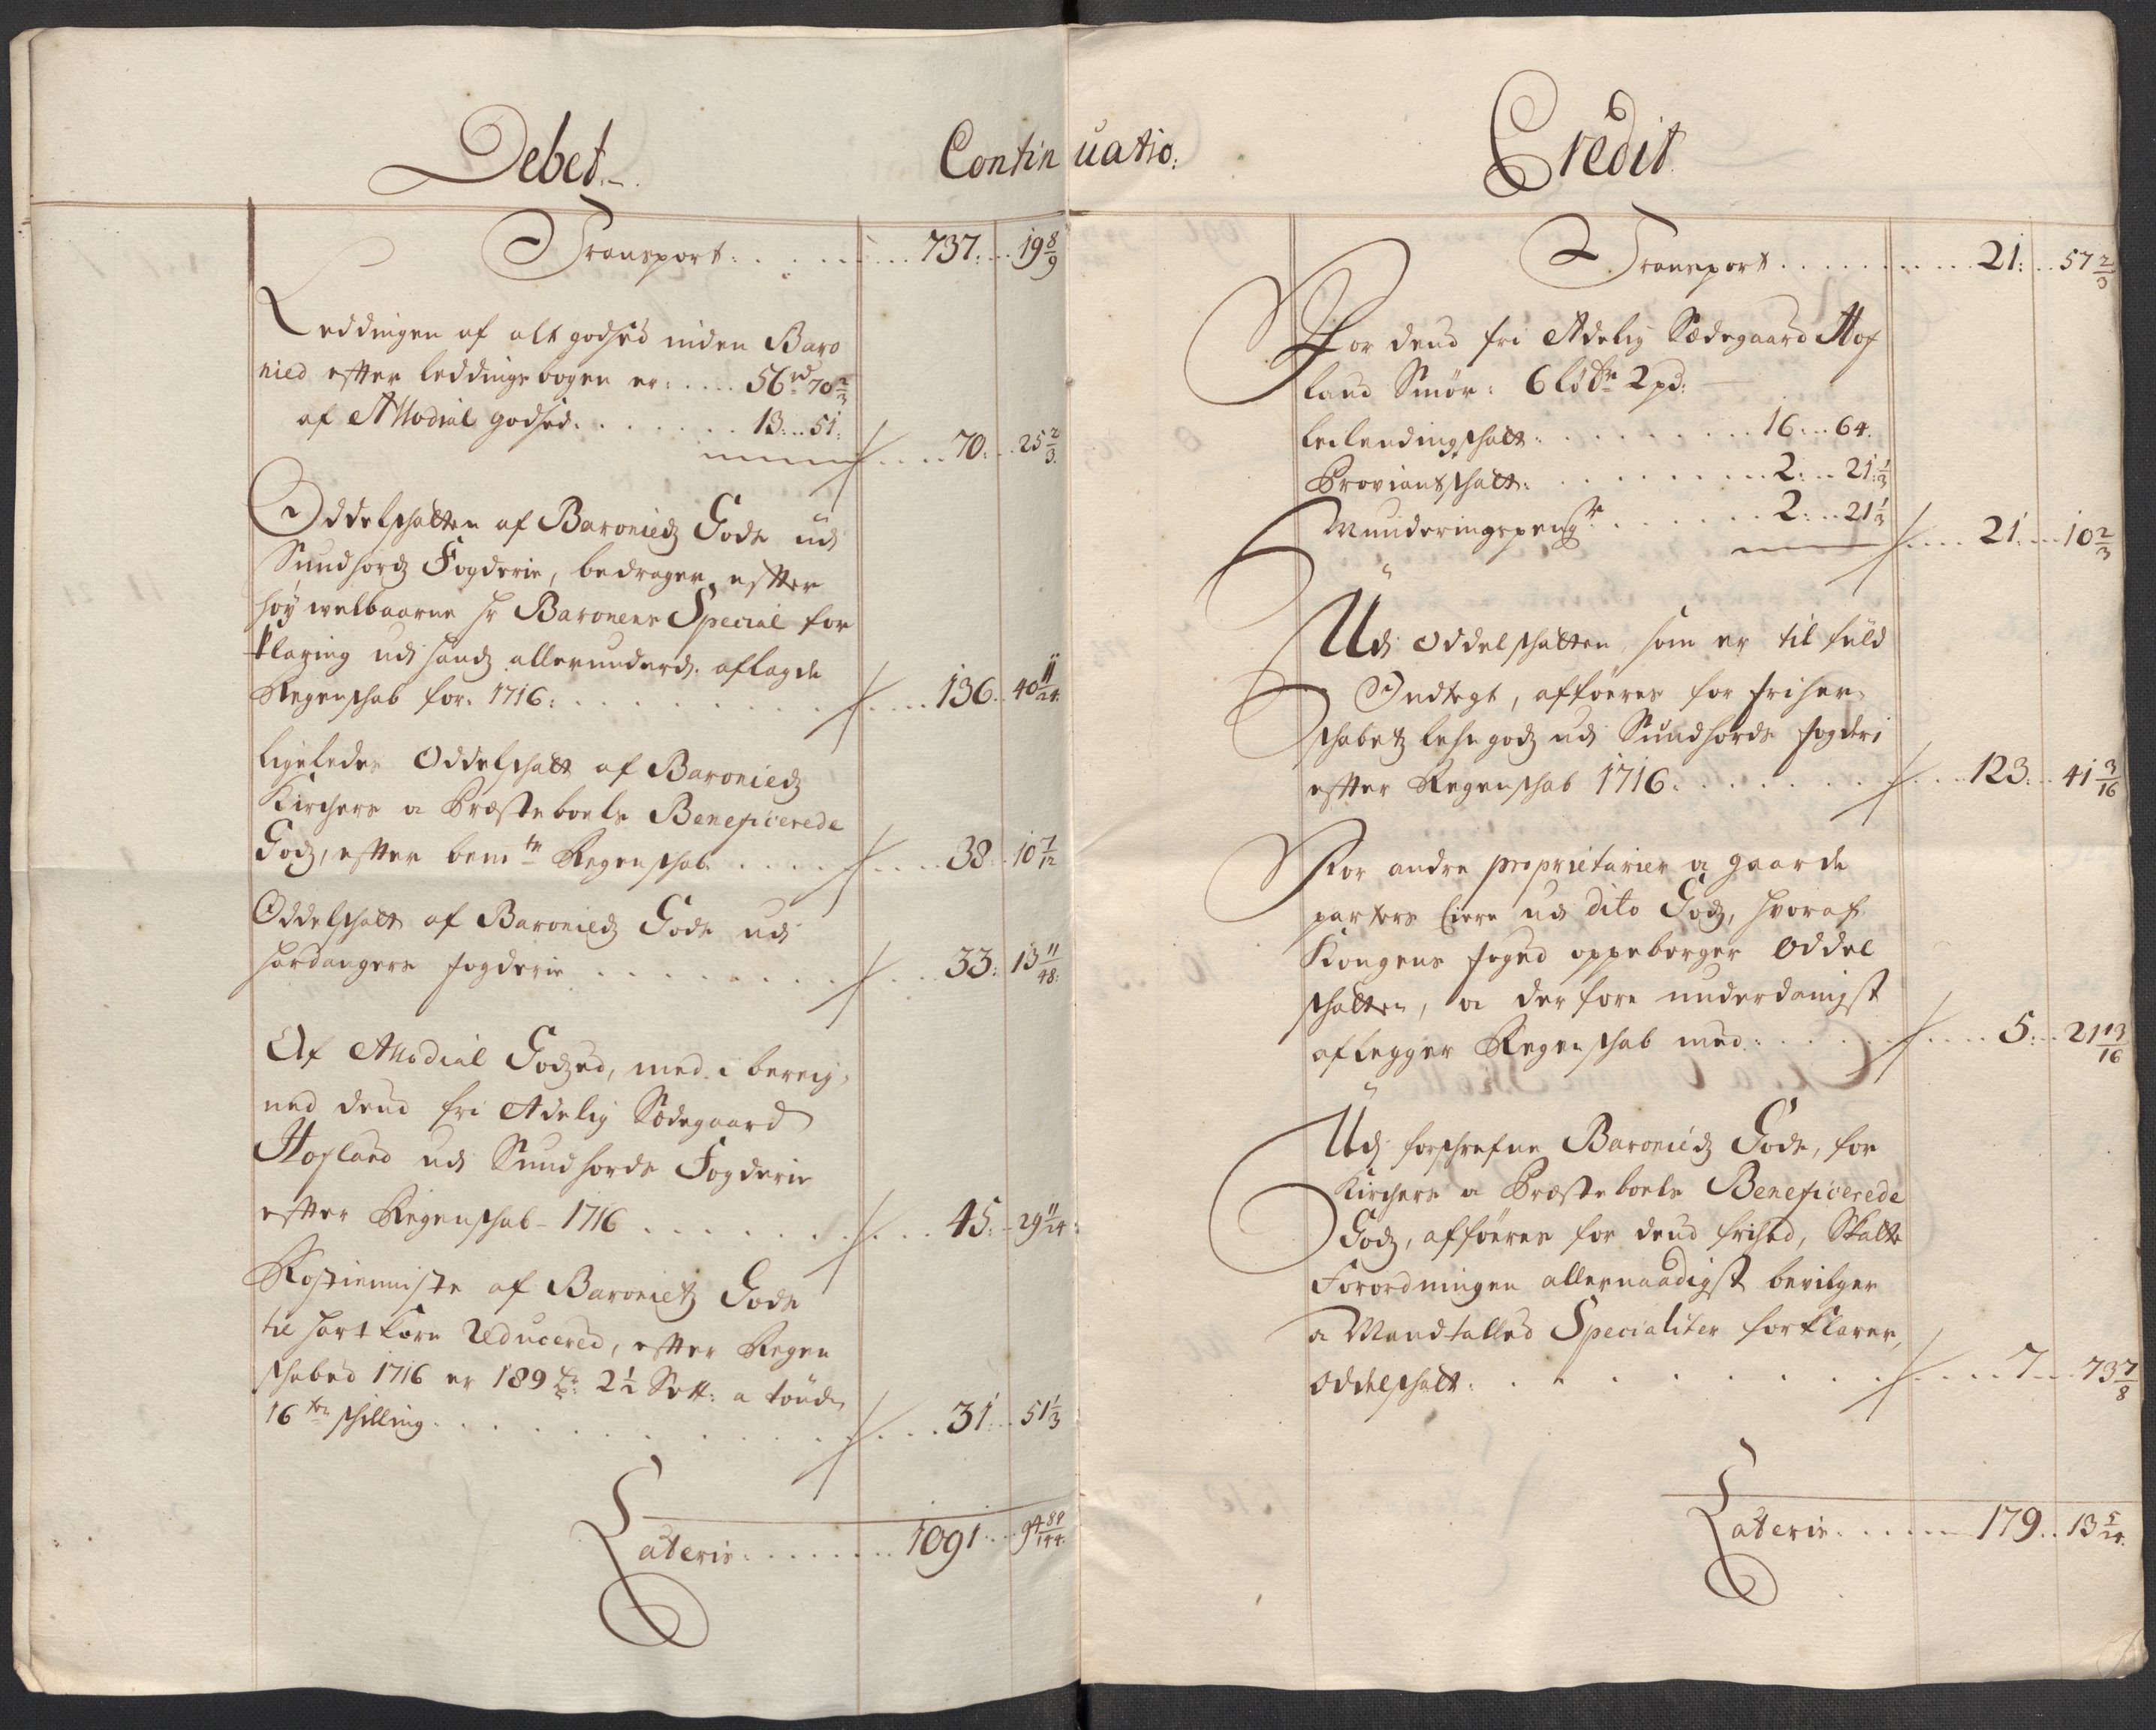 Debet.
Continuatio.
Transport: 737: 19 8/9
Leddingen af alt godsed inden Baro
nied efter leddings bogen er: 56 rd 70 2/3
af Allodial godsed. 13: 51:
70: 25 2/3
Oddelschatten af Baroniedz Gods udj
Sundhordz Fogderie, bedrager efter
höy welbaarne Hr Baronens Special for
klaring udj handz allerunderd. aflagde
Regenschab for: 1716: 136: 40 11/24
Ligeledes Oddelschatt af Baroniedz
Kirchers oc Præsteboels Beneficerede
Godz, efter bemte Regenschab. 38: 10 7/12
Oddelschatt af Baroniedz Gods udj
Hardangers fogderie 33: 13 11/48
Af Allodial Godzed, med i bereig-
ned dend fri Adelig Sædegaard
Hofland udj Sundhords Fogderie
efter Regenschab 1716 45: 29 11/24
Rostieniste af Baronietz Gods
til hart korn Reducered, efter Regen
schabed 1716 er 189 tr: 2 1/2 Sett: a tönde
16 ten schilling. 31: 51 1/3
Lateris: 1091: 94 89/144
Credit
Transport 21: 57 2/3
For dend fri Adelig Sædegaard Hof
land Smör: 6 løber 2 pd:
Leilendingschatt: 16: 64.
Proviantschatt: 2: 21 1/3
Munderingspenge 2: 21 1/3
21: 10 2/3
Udj Oddelschatten, som er til fuld
Indtegt, afföeres for friher-
schabetz lehngodz udj Sundhords fogderi
efter Regenschab 1716: 123: 41 3/16
For andre proprietarier oc gaarde
parters Eiere udj dito Godz, hvoraf
Kongens foged oppeberger Oddel
schatten, oc derfore underdanigst
aflegger Regenschab med: 5: 21 13/16
Udj forschrefne Baroniedz Gods, for
Kirchers oc Præsteboels Beneficerede
Godz, afföeres for dend frihed, Skatte
Forordningen allernaadigst bevilger
oc Mandtalled Specialiter forklarer,
Oddelschatt: 7: 73 7/8
Lateris 179: 13 5/24